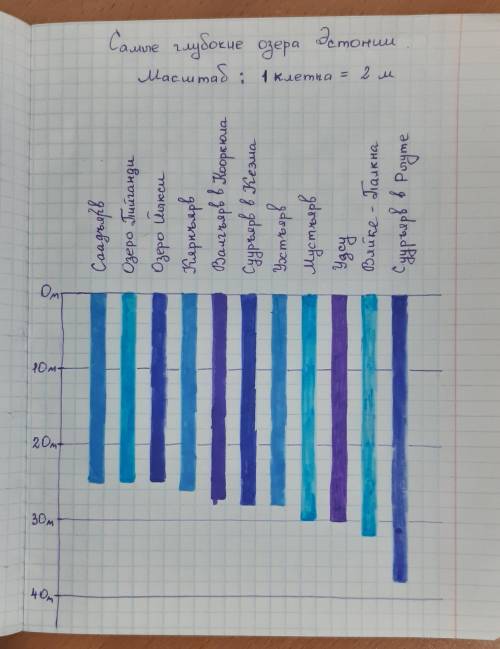 Самые глубокие озера Эстонии.
Масштаб: 1 клетка = 2 м
Саадъярв
Озеро Пийганди
Озеро Йыкси
Кяркъярв
Валгъярв в Кооркюла
Сууръярв в Кезма
Ухтъярв
Мустъярв
Удсу
Вяйке-Палкна
Сууръярв в Рыуге
0м
10м
20м
30м
40м